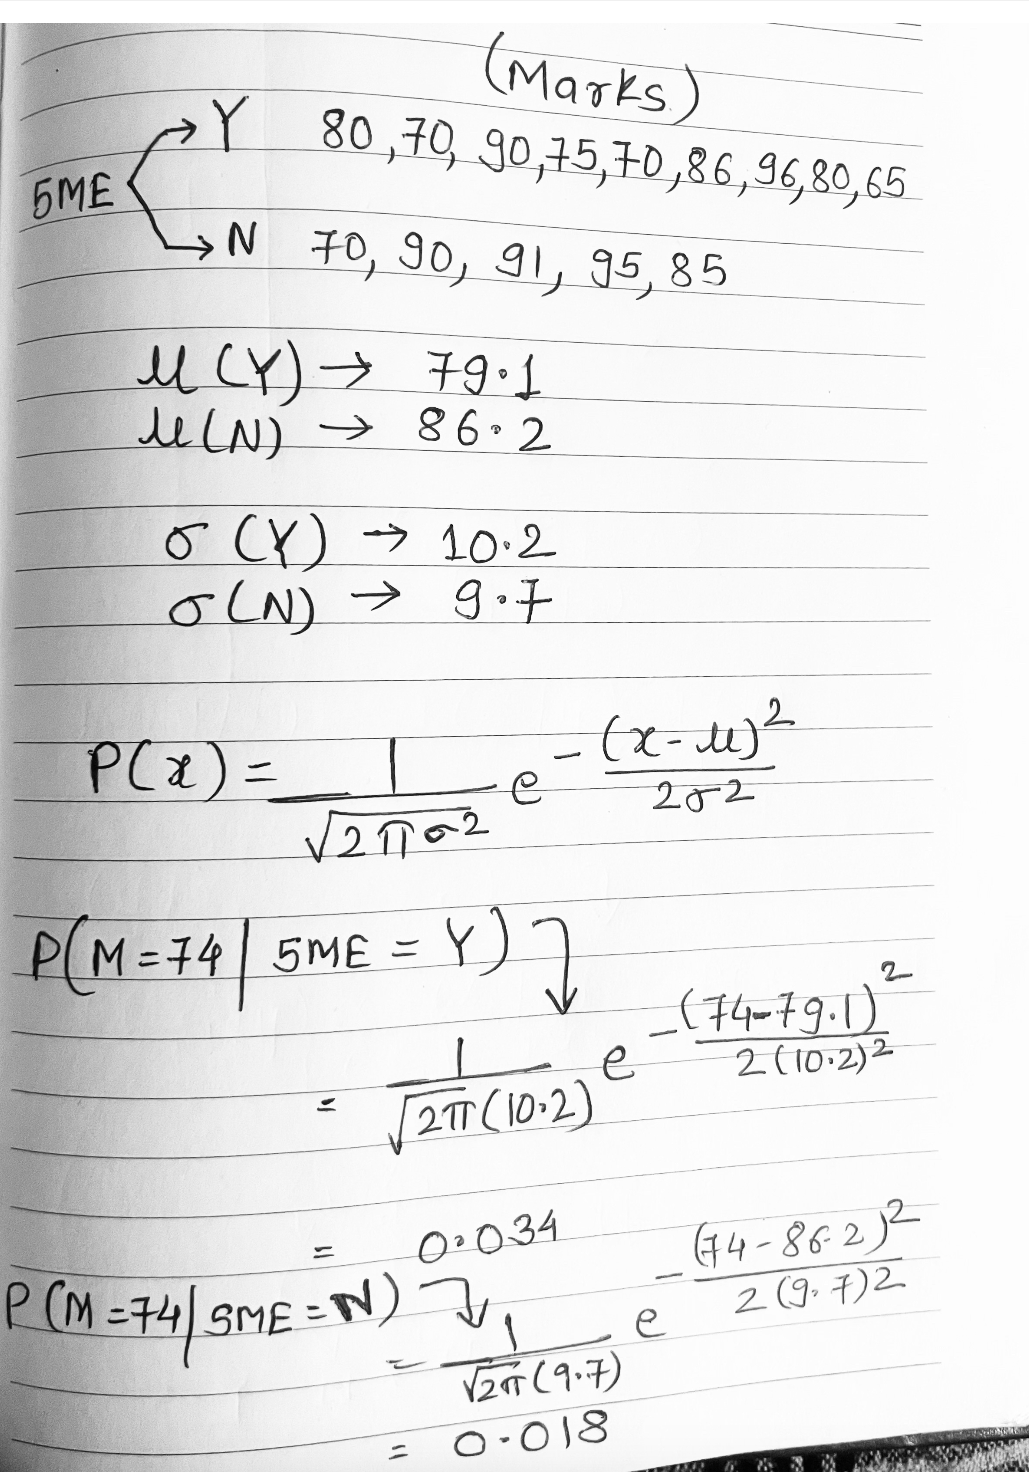 (Marks)
Y 80, 70, 90, 75, 70, 86, 96, 80, 65
5ME
N 70, 90, 91, 95, 85
μ (Y) → 79.1
μ (N) → 86.2
σ (Y) → 10.2
σ (N) → 9.7
P(x) = 1/√2πσ² e^-(x-μ)²/2σ2
P(M=74 | 5ME = Y)
= 1/√2π(10.2) e^-(74-79.1)²/2(10.2)²
= 0.034
P(M=74 | 5ME = N)
= 1/√2π(9.7) e^-(74-86.2)²/2(9.7)2
= 0.018